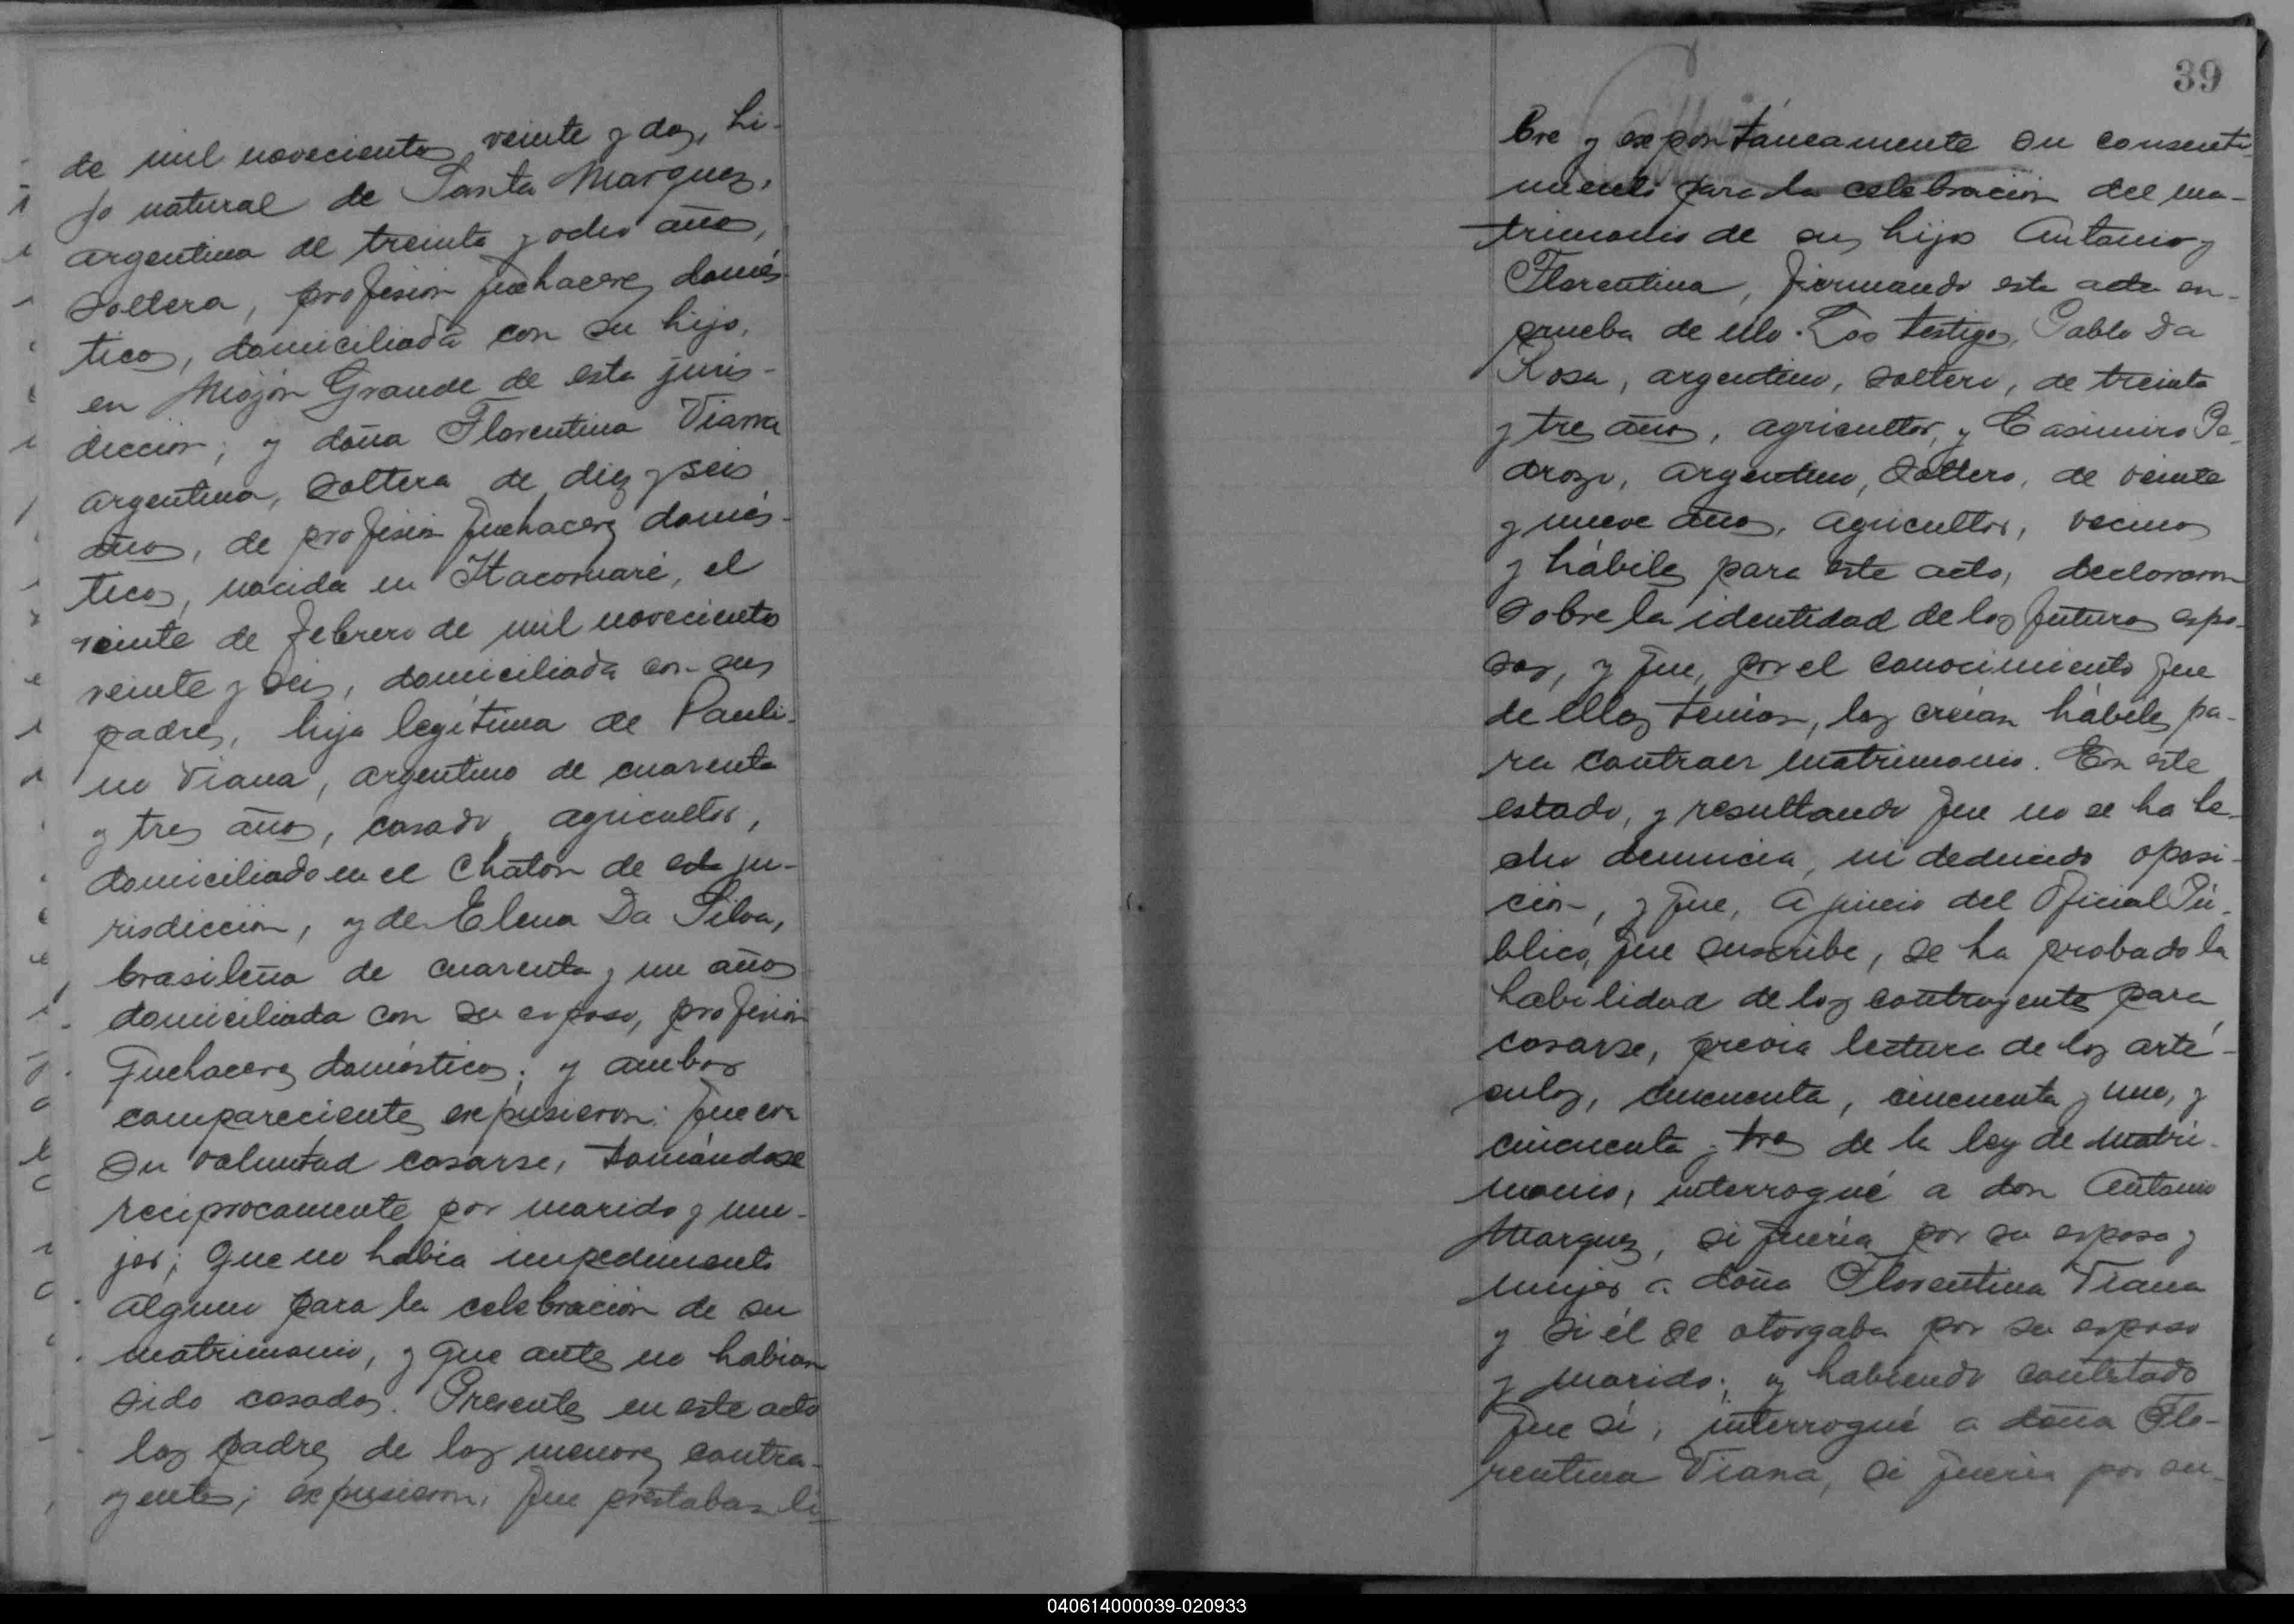 de mil novecientos veinte y dos, hi-
jo natural de Santa Marquez,
argentina de treinta y ocho años,
soltera, profesion quehaceres domés-
ticos, domiciliada con su hijo,
en Mojón Grande de esta juris-
dicción; y doña Florentina Viana
argentina, soltera de diez y seis
años, de profesión quehaceres domés-
ticos, nacida en Itacoruaré, el
veinte de febrero de mil novecientos
veinte y seis, domiciliada con sus
padres, hija legítima de Pauli-
no Viana, argentino de cuarenta
y tres años, casado, agricultor,
domiciliado en el Chatón de esta ju-
risdicción, y de Elena Da Silva,
brasileña de cuarenta y un años
domiciliada con su esposo, profesión
quehaceres domésticos; y ambos
comparecientes expusieron: que era
su voluntad casarse, tomándose
reciprocamente por marido y mu-
jer; que no había impedimento
alguno para la celebración de su
matrimonio, y que antes no habían
sido casados. Presentes en este acto
los padres de los menores contra-
yentes; expusieron, que prestaban li-
39
bre y expontáneamente su consenti-
miento para la celebración del ma-
trimonio de sus hijos Antonio y
Florentina, firmando esta acta en
prueba de ello. Los testigos, Pablo Da
Rosa, argentino, soltero, de treinta
y tres años, agricultor, y Casimiro Pe-
drozo, argentino, soltero, de veinte
y nueve años, agricultor, vecinos
y hábiles para este acto, declararon
sobre la identidad de los futuros espo-
sos, y que, por el conocimiento que
de ellos tenían, los creían hábiles pa-
ra contraer matrimonio. En este
estado, y resultando que no se ha he-
cho denuncia, ni deducido oposi-
ción, y que, a juicio del Oficial Pú-
blico, que suscribe, se ha probado la
habilidad de los contrayentes para
casarse, previa lectura de los artí-
culos, cincuenta, cincuenta y uno, y
cincuenta y tres de la ley de Matri-
monio, interrogué a don Antonio
Marquez, si quería por su esposa y
mujer a doña Florentina Viana
y si él se otorgaba por su esposo
y marido; y habiendo contestado
que sí, interrogué a doña Flo-
rentina Viana, si quería por su
040614000039-020933